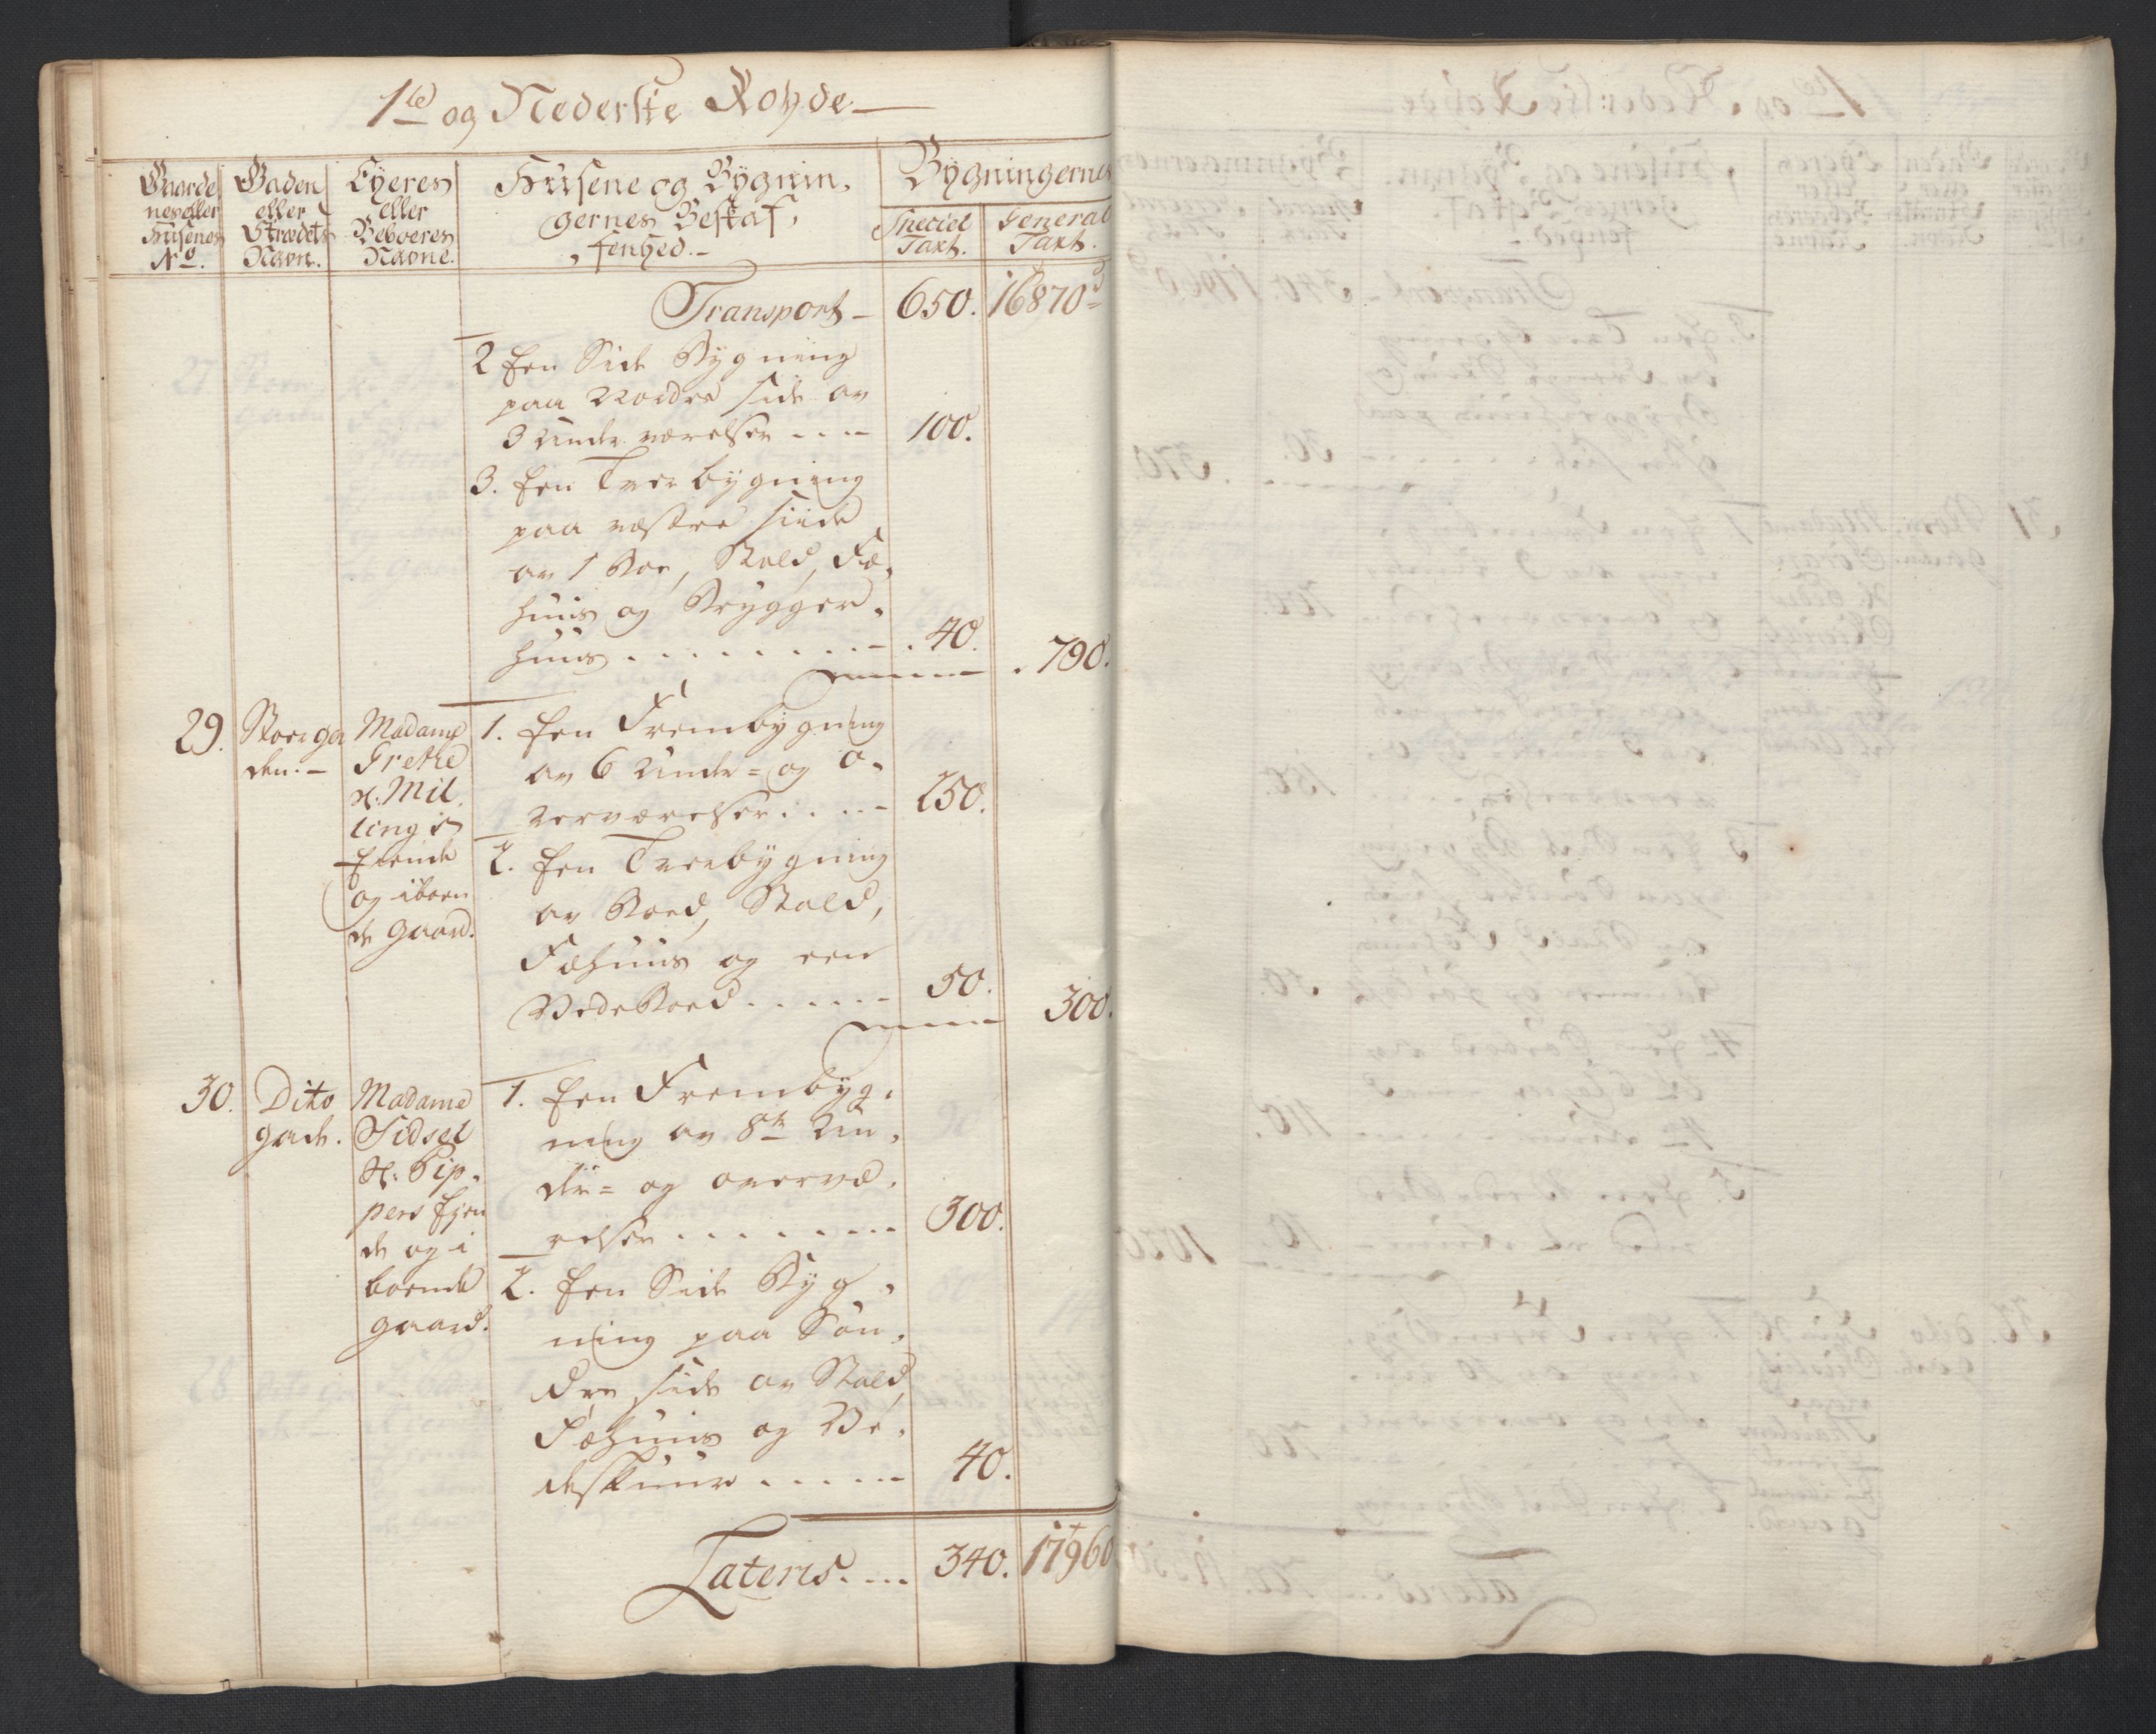 1te og Nederste Rohde.
Gaarde
nes eller
Husenes
No.
Gaden
eller
Strædets
Navn.
Eÿeres
eller
Beboeres
Navne.
Husene og Bÿgnin,
gernes Beskaf,
fenhed.
Bÿgningernes
Speciel
Taxt.
General
Taxt.
Transport – 650. 16870
2 Een Side Bÿgning
paa Nordre side av
3 Under værelser 100.
3. Een Tverbÿgning
paa vestre siide
av 1 Boe, Stald, Fæ,
huus og Brÿgger,
huus 40. 790.
29. Storega
den.
Madame
Grethe
H. Mil,
ling's
Eiende
og iboen
de Gaard.
1. Een Frembÿgning
av 6 Under= og O,
verværelser 250.
2. Een Tverbÿgning
av Boed, Stald,
Fæhuus og een
VedeBoed 50. 300.
30. Dito
gade.
Madame
Sidsel
H. Pip,
pers Ejen
de og i
boende
gaard.
1. Een Frembÿg,
ning av 8te Un,
der= og overvæ,
relser 300.
2. Een Side Bÿg,
ning paa Søn,
dre side av Stald,
Fæhuus og Ve,
deskuur 40.
Lateris 340. 17960